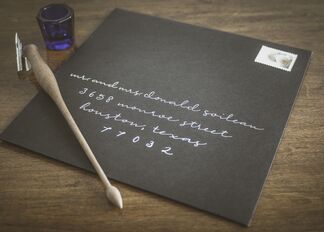 mr. and mrs. donald goilean
3658 monroe street
houston, texas
77032